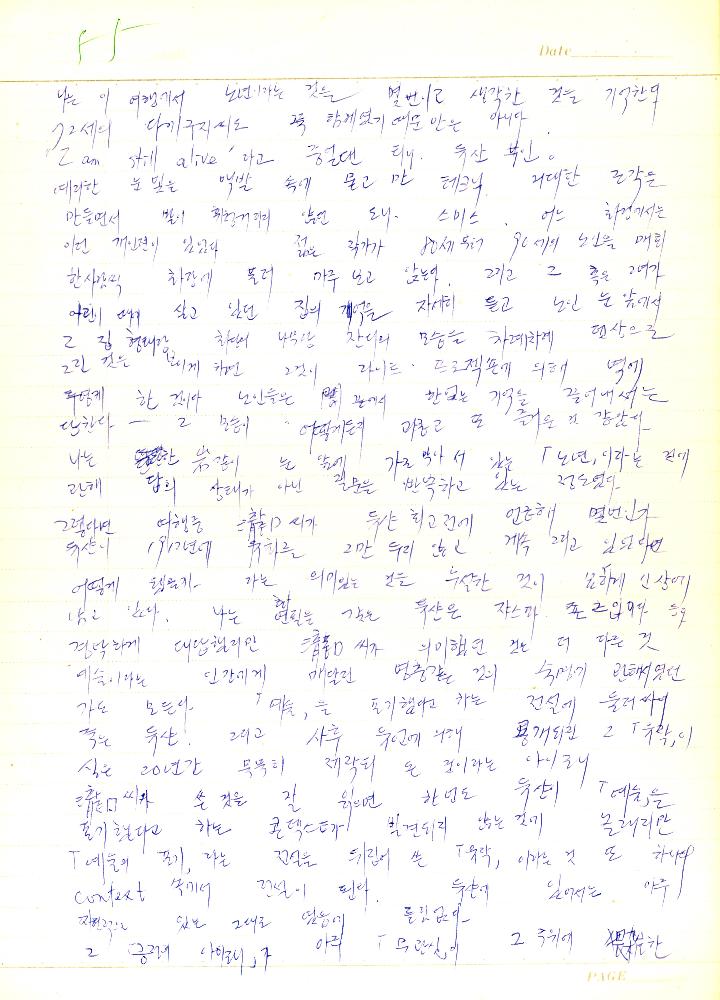 55
Date
나는 이 여행에서 노년이라는 것을 몇번이고 생각한 것을 기억한다
72세의 다키구치씨도 꼭 함께였기 때문만은 아니다
I am still alive 라고 중얼댄 뒤샹 부인。
예리한 눈빛을 백발 속에 묻고 만 테크닉 거대한 조각을
만들면서 발이 휘청거리지 않던 도니. 스미스. 어느 화랑에서는
이런 개인전이 있었다 젊은 작가가 80세부터 90세의 노인을 매회
한사람씩 화랑에 불러 마주 보고 앉는다. 그리고 그 혹은 그녀가
어린 때에 살고 있던 집의 기억을 자세히 듣고 노인 눈 앞에서
그 집 형태랑 차고나 나무랑 잔디의 모습을 차례차례 연상으로
그린 것은 보이게 하면 그것이 라이트・프로젝트에 의해 벽에
한 것이다 노인들은 끝에서 한없는 기억을 끌어내서는
그 모습이 어떻게든지 괴롭고 또 즐거운 것 같았다.
나는 눈 앞에 가로막아 서 있는 「노년」이라는 것에
관해 답의 상태가 아닌 질문을 반복하고 있는 정도였다.
그렇다면 여행중 씨가 뒤샹 회고전에 언급해 몇번인가
뒤샹이 1912년에 회화를 그만 두지 않고 계속 그리고 있었다면
어떻게 됐을까. 라는 의미있는 것을 누설한 것이 묘하게 인상에
남고 있다. 나는 붓을 꺾는 뒤샹은 쟈스파 죤즈입니다 등으로
경박하게 대답했지만 씨가 의미했던 것은 더 다른 것
예술이라는 인간에게 매달린 멍충같은 것의 숙명에 관해서였던
가도 모른다. 「예술」을 포기했다고 하는 전설에 둘러싸여
죽은 뒤샹. 그리고 사후 유언에 의해 공개되린 그 「유작」이
실은 20년간 묵묵히 제작되 온 것이라는 아이로니
씨가 쓴 것을 잘 읽으면 한번도 뒤샹이 「예술」을
포기했다고 하는 콘텍스트가 발견되지 않는 것에 놀래지만
「예술의 포기」라는 전설을 뒤집어 쓴 「유작」이라는 것 또 하나의
context 속에서 전설이 된다. 뒤샹에 있어서는 아주
자연적으로 있는 그대로 였음에 틀림없다.
그 「긍정의 아이로니」가 아주 「무관심」이 그 주위에
PAGE